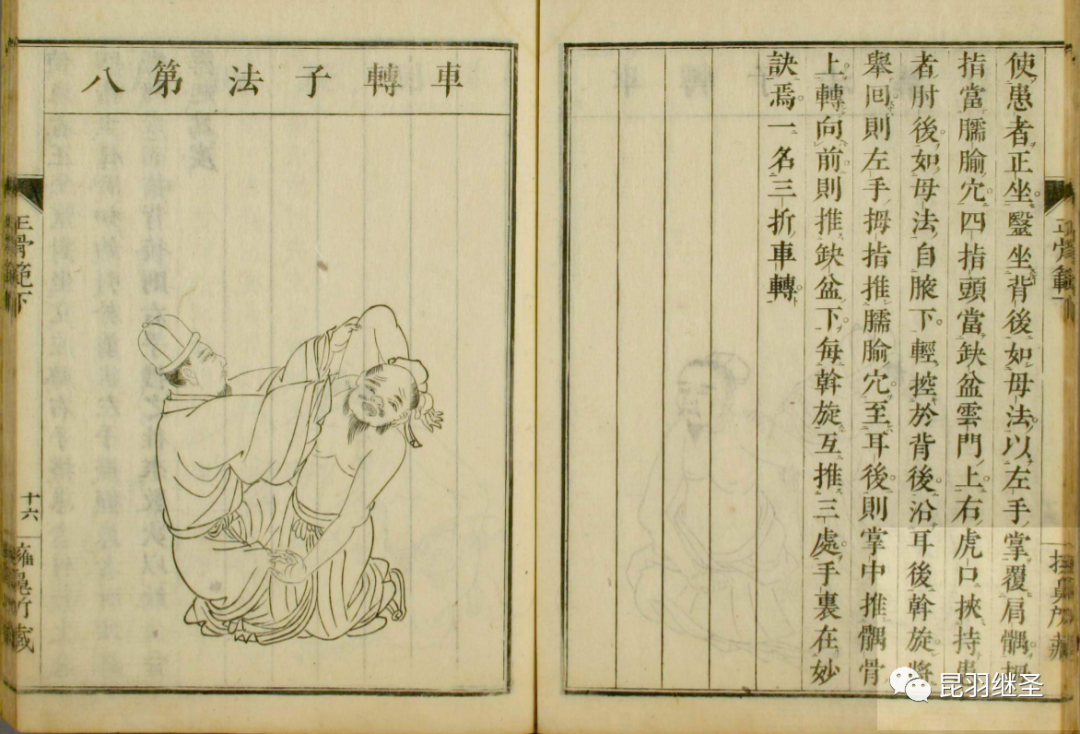 正骨範
使患者正坐。醫坐背後如母法。以左手掌覆肩髃。拇
指當臑腧穴。四指頭當缺盆雲門上。右虎口挾持患
者肘後。如母法。自腋下輕控於背後。沿耳後斡旋。將
舉回則左手拇指推臑腧穴。至耳後則掌中推髃骨
上。轉向前則推缺盆下。每斡旋互推三處。手裏在妙
訣焉。一名三折車轉。
車轉子法第八
正骨範下
十六
昆羽继圣